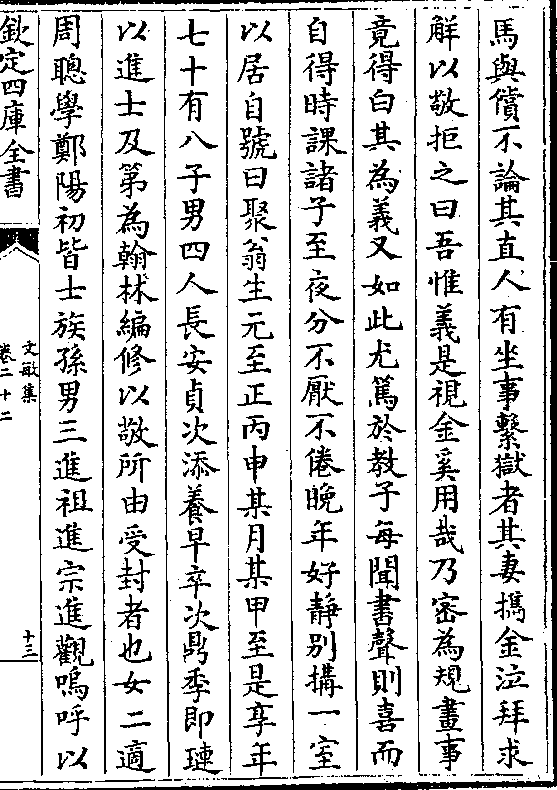 馬與償不論其直人有坐事繫獄者其妻攜金泣拜求
解以敬拒之曰吾惟義是視金奚用哉乃密為規畫事
竟得白其為義又如此尤篤於教子每聞書聲則喜而
自得時課諸子至夜分不厭不倦晚年好靜別搆一室
以居自號曰聚翁生元至正丙申某月某甲至是享年
七十有八子男四人長安貞次添養早卒次鼎季即璉
以進士及第為翰林編修以敬所由受封者也女二適
周聰學鄭陽初皆士族孫男三進祖進宗進觀嗚呼以
欽定四庫全書
文敏集
卷二十二
十三